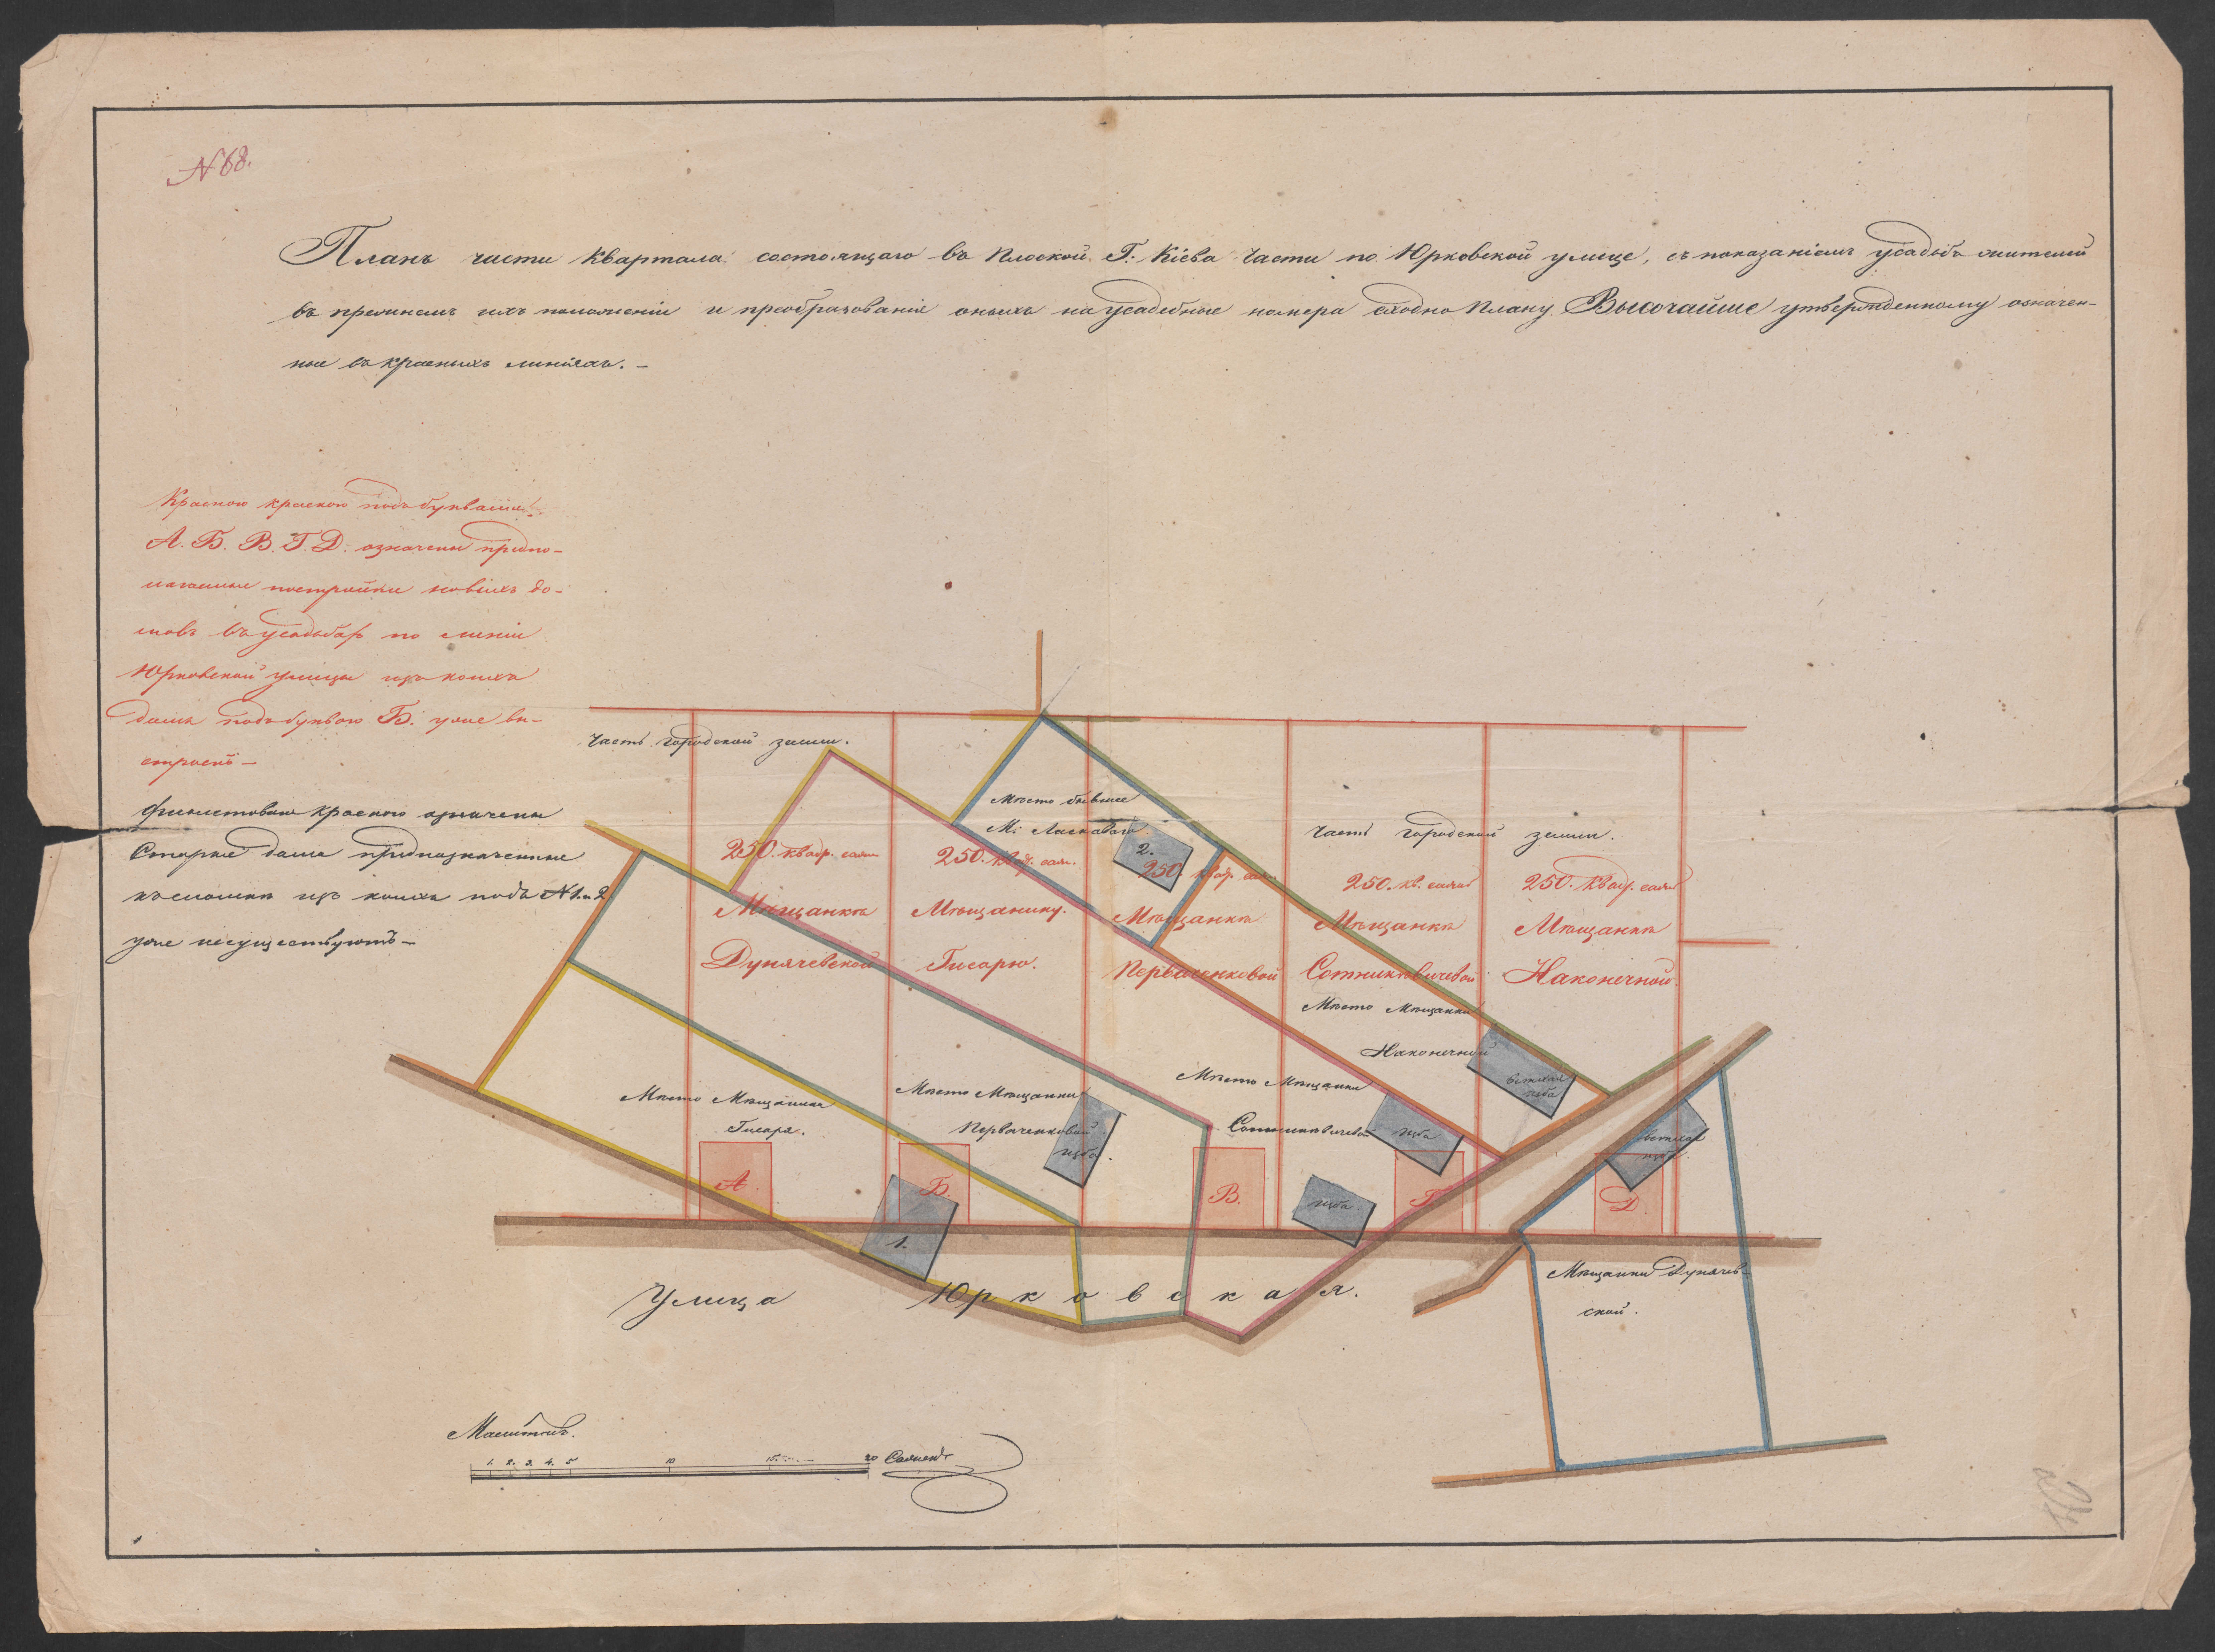 N 68.
Планъ части квартала состоящаго въ Плоской Г. Кіева Части по Юрковской улице, съ показаніемъ усадьбъ жителей
въ прежнемъ ихъ положеніи и преобразованіи оныхъ на усадебные номера сходно Плану Высочайше утвержденному означен-
ные въ красныхъ линіяхъ. –
Красною краскою подъ буквами
А. Б. В. Г. Д. означены предпо-
лагаемые постройки новыхъ до-
мовъ въ усадьбах по линіи
Юрковской улицы изъ коихъ
домъ подъ буквою Б. уже вы-
строенъ –
фіолетовою краскою означены
Старые дома предназначенные
къ сломке изъ коихъ подъ N 1 и 2
уже несуществуютъ –
Часть городской земли.
Место бывшее
М:
2.
Часть городской земли.
250. квадр. саж.
250. квад. саж.
250. квад. саж.
250. кв. сажъ
250. квад. сажъ
Мѣщанкѣ
Мѣщанину.
Мѣщанкѣ
Мѣщанкѣ
Мѣщанкѣ
Дунячевской
Гисарю.
Перваченковой
Сотниковичевой
Наконечной.
Мѣсто Мѣщанки
Наконечной
ветхая
изба
Мѣсто Мѣщанина
Гисаря.
Мѣсто Мѣщанки
Перваченковой
изба.
Мѣсто Мѣщанки
Сотниковичевой
изба
ветхая
изба.
А.
Б.
В.
Г.
Д.
изба
1.
Улица Юрковская.
Мѣщанки Дунячев-
ской.
Масштабъ.
1. 2. 3. 4. 5 10 15. 20 Саженъ